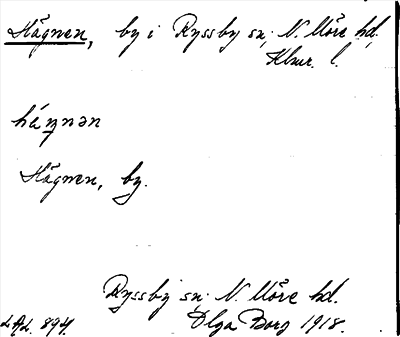 Hägnen, by i Ryssby sn; N. Möre hd,
Klmr. l.
hä́ŋnən
Hägnen, by.
Ryssby sn; N. Möre hd.
LAL. 894. Olga Borg 1918.